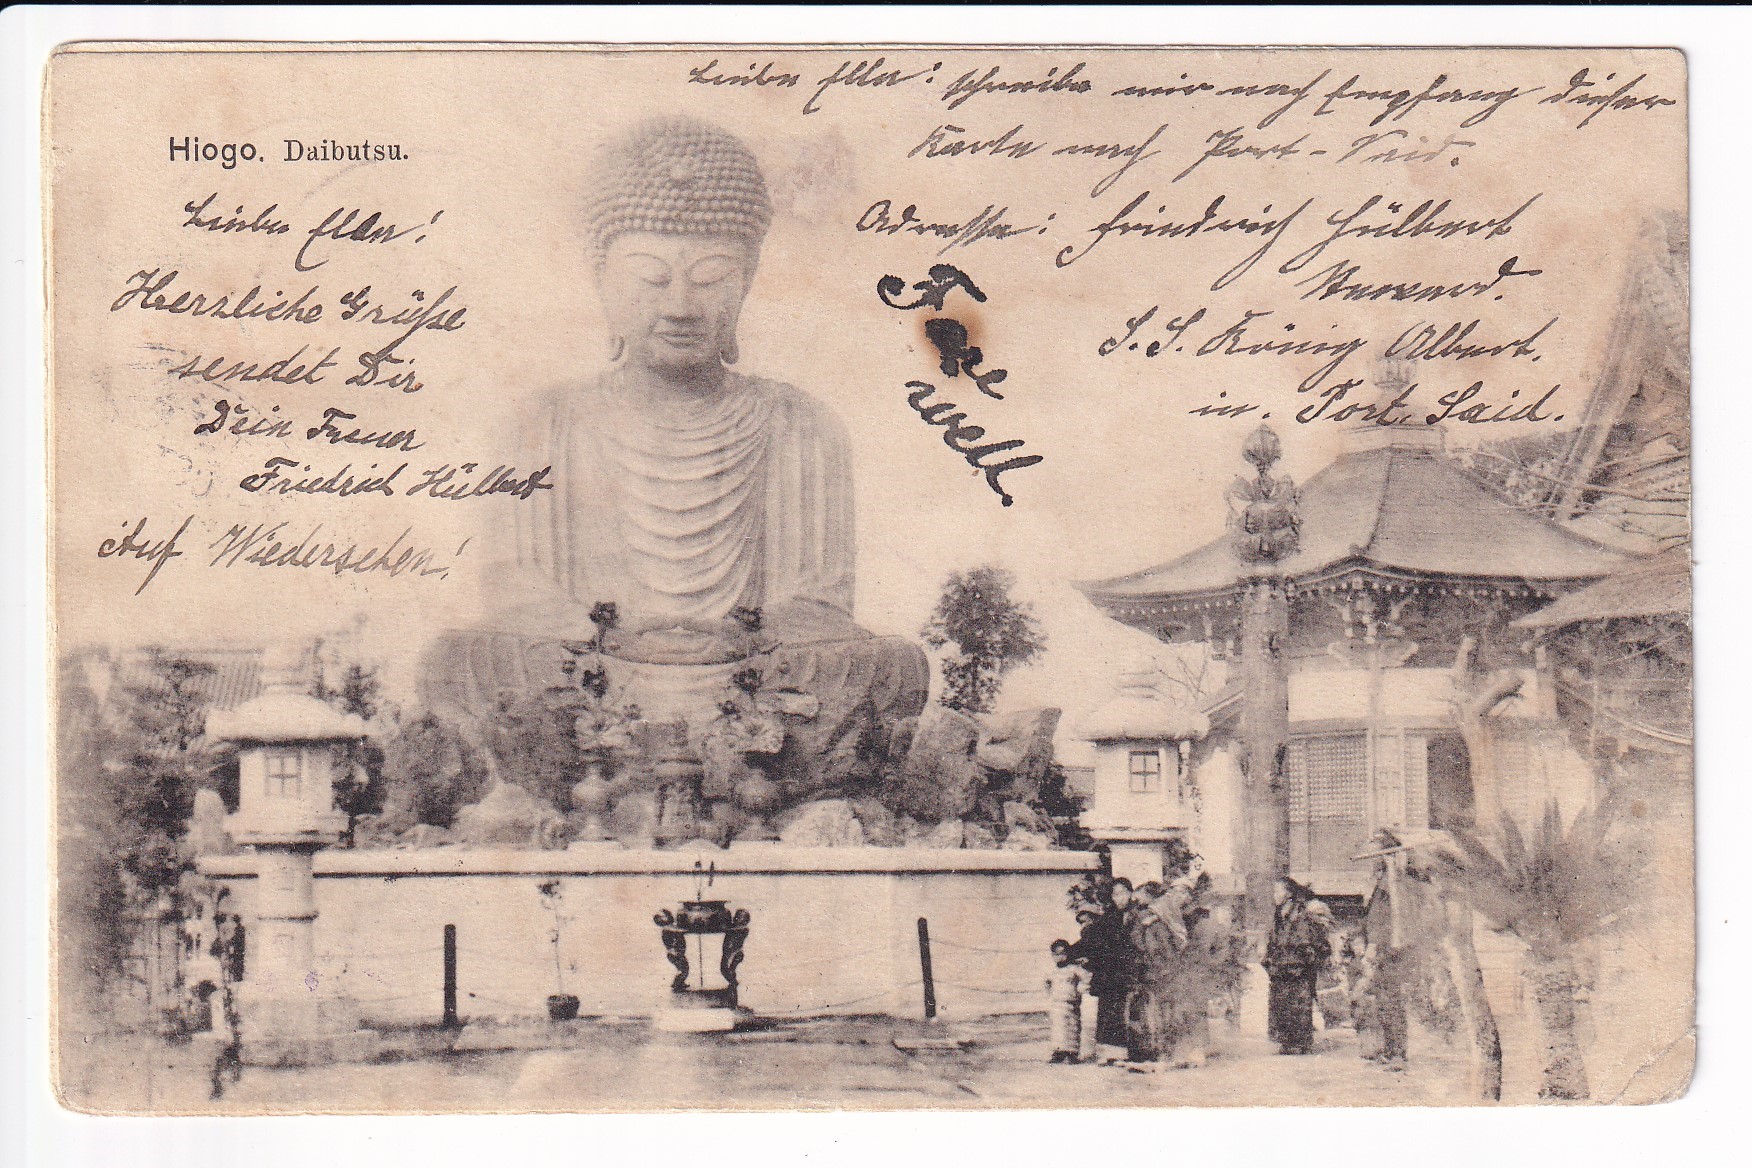 Hiogo. Daibutsu.
Liebe Ella!
Herzliche Grüße
sendet Dir
Dein Treuer
Friedrich Hülbert
Auf Wiedersehen!
Liebe Ella! schreibe mir nach Empfang dieser
Karte nach Port-Said.
Adresse: Friedrich Hülbert
Steward.
S.S. König Albert.
in. Port. Said.
Fare
well.